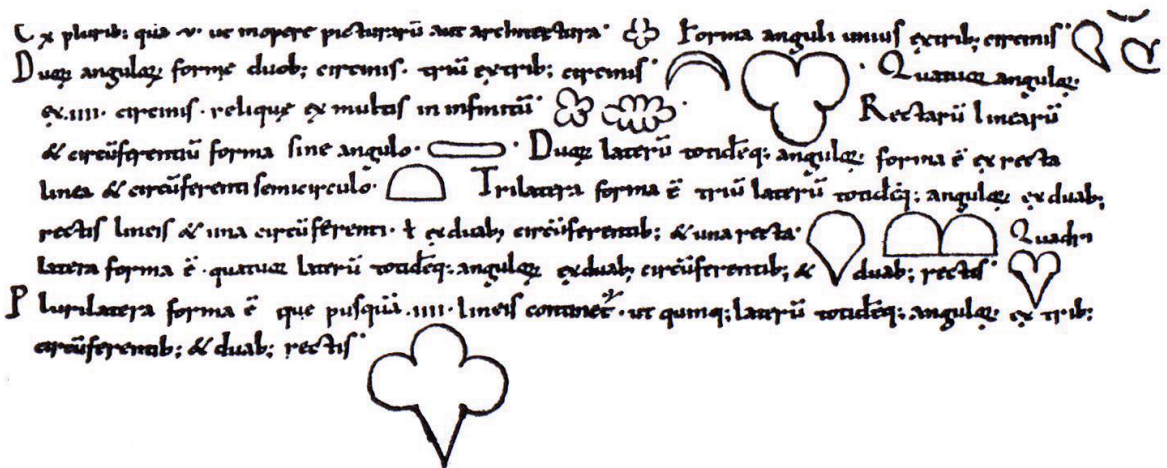 Ex plurib; qua v. ut in opere picturarū aut architectura. Forma anguli unius ex trib; circinis.
Duoꝝ anguloꝝ formę duob; circinis. triū ex trib; circinis. Quatuor anguloꝝ
ex .IIII. circinis. reliquę ex multis in infinitū. Rectarū linearū
& circūferentiū forma sine angulo. Duoꝝ laterū totidēq; anguloꝝ forma ē ex recta
linea & circūferenti semicirculo. Trilatera forma ē triū laterū totidēq; anguloꝝ ex duab;
rectis lineis & una circūferenti. ł ex duab; circūferentib; & una recta. Quadri
latera forma ē. quatuor laterū totidēq; anguloꝝ ex duab; circūferentib; & duab; rectis.
Plurilatera forma ē que pusquā .IIII. lineis continet. ut quinq; laterū totidēq; anguloꝝ ex trib;
circūferentib; & duab; rectis.